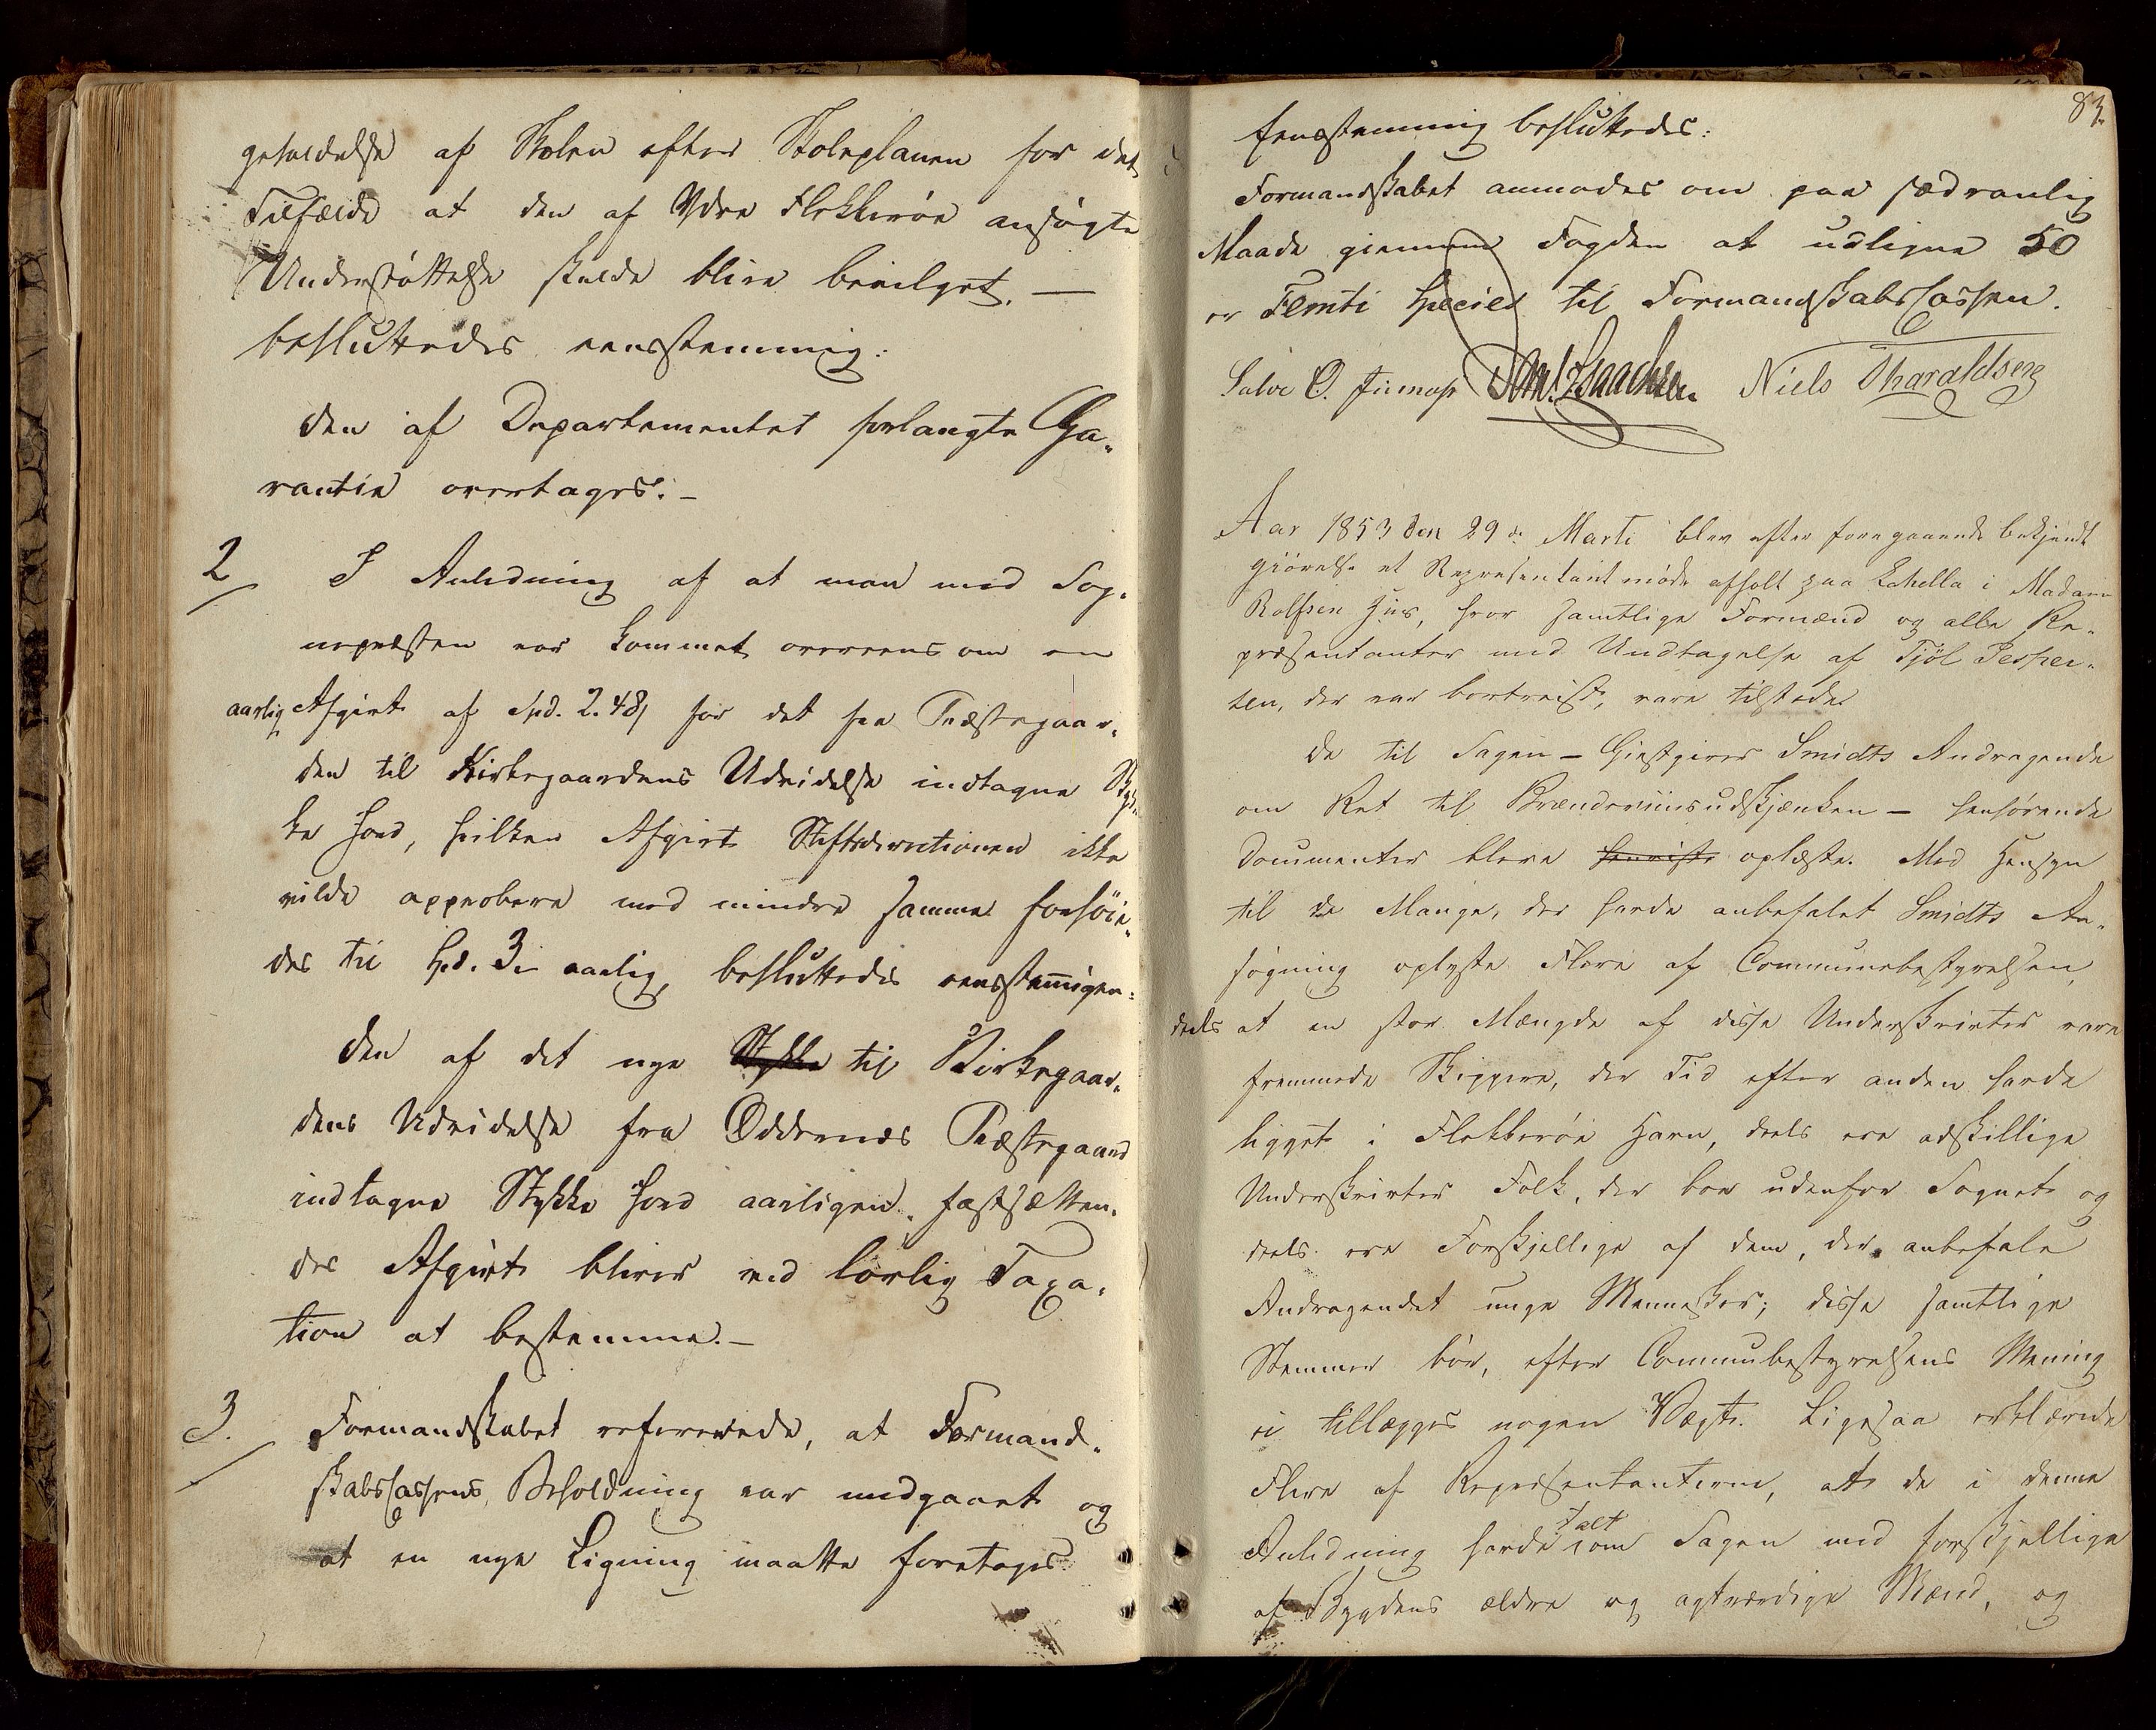 geholdelse af Skolen efter Skoleplanen for det
Tilfælde at den af Ydre Flekkerøe ansøgte
Understøttelse skulde blive bevilget. —
besluttedes eensstemmig:
den af Departementet forlangte Ga-
rantie overtages. —
2 I Anledning af at man med Sog-
nepræsten var kommet overeens om en
aarlig Afgivt af Spd. 2. 48 for det fra Præstegaar-
den til Kirkegaardens Udvidelse indtagne Styk-
ke Jord, hvilken Afgivt Stiftsdirectionen ikke
vilde approbere med mindre samme forhøie-
des til Spd. 3 aarlig, besluttedes eensstemmigen:
den af det nye Stykke til Kirkegaar-
dens Udvidelse fra Oddernes Præstegaard
indtagne Stykke Jord aarligen fastsætten-
des Afgivt bliver ved lovlig Taxa-
tion at bestemme. —
3. Formandskabet refererede, at Formand-
skabscassens Beholdning var medgaaet og
at en nye Ligning maatte foretages.
83.
Eenstemmig besluttedes:
Formandskabet anmodes om paa sædvanlig
Maade giennem Fogden at udligne 50
er Femti Species til Formandskabscassen.
Salve O. DAn. Isaachsen Niels Tharaldsen
Aar 1853 den 29de Marti blev efter foregaaende bekjendt
giørelse et Representantmøde afholt paa Lahella i Madam
Rolfsen Hus, hvor samtlige Formænd og alle Re-
præsentanter med Undtagelse af Tjøl Jesper-
sen, der var bortreist, vare tilstede.
De til Sagen – Giestgiver Smidts Andragende
om Ret til Brændeviinsudskjænken – henhørende
Documenter bleve oplæste. Med Hensyn
til de Mange, der havde anbefalet Smidts An-
søgning oplyste Flere af Communebestyrelsen,
deels at en stor Mængde af disse Underskrivter vare
fremmede Skippere, der Tid efter anden havde
ligget i Flekkerøe Havn, deels ere adskillige
Underskrivter Folk, der boe udenfor Sognet og
deels ere Forskjellige af dem, der anbefale
Andragendet unge Mennesker; disse samtlige
Stemmer bør, efter Commubestyrelsens Mening
ei tillægges nogen Vægt. Ligesaa erklærede
Flere af Representanterne, at de i denne
Anledning havde talt om Sagen med forskjellige
af Bygdens ældre og agtværdige Mænd, og